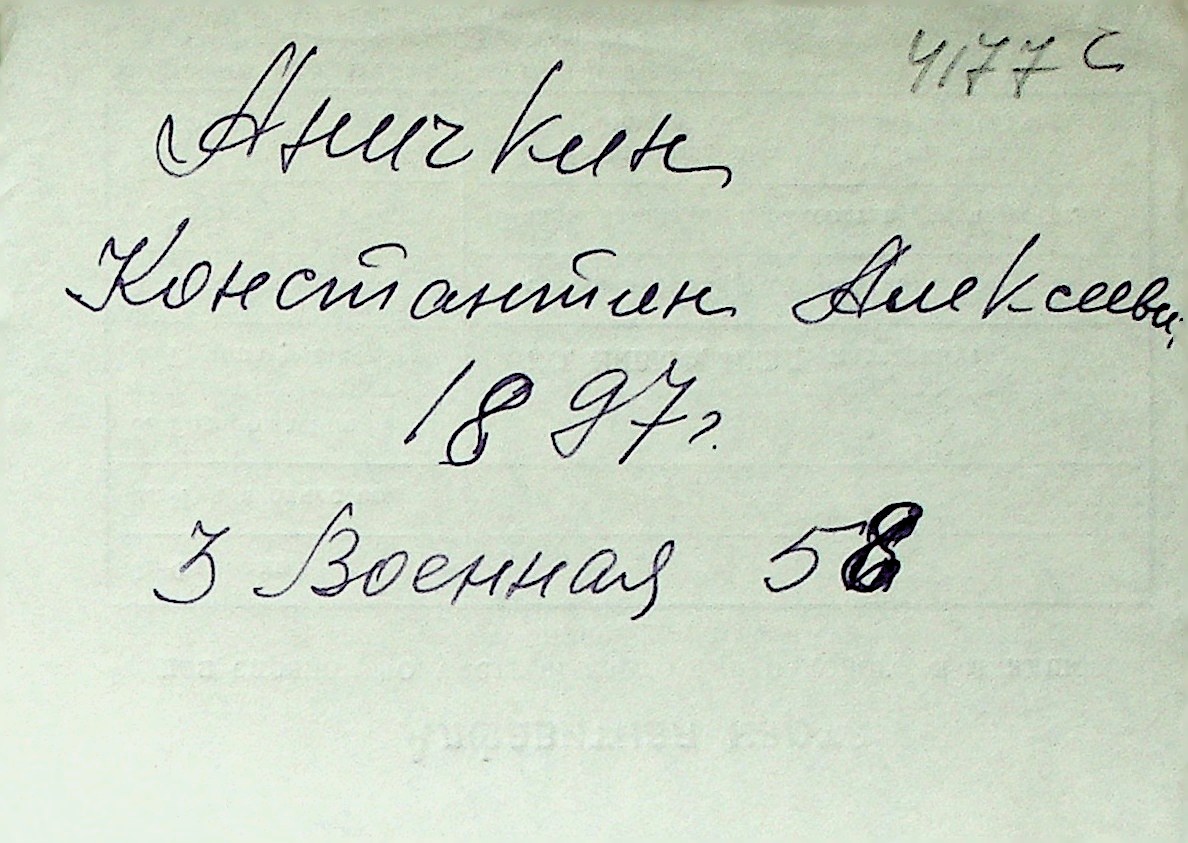 4177 с
Аничкин
Константин Алексееви
1897г.
3 Военная 58